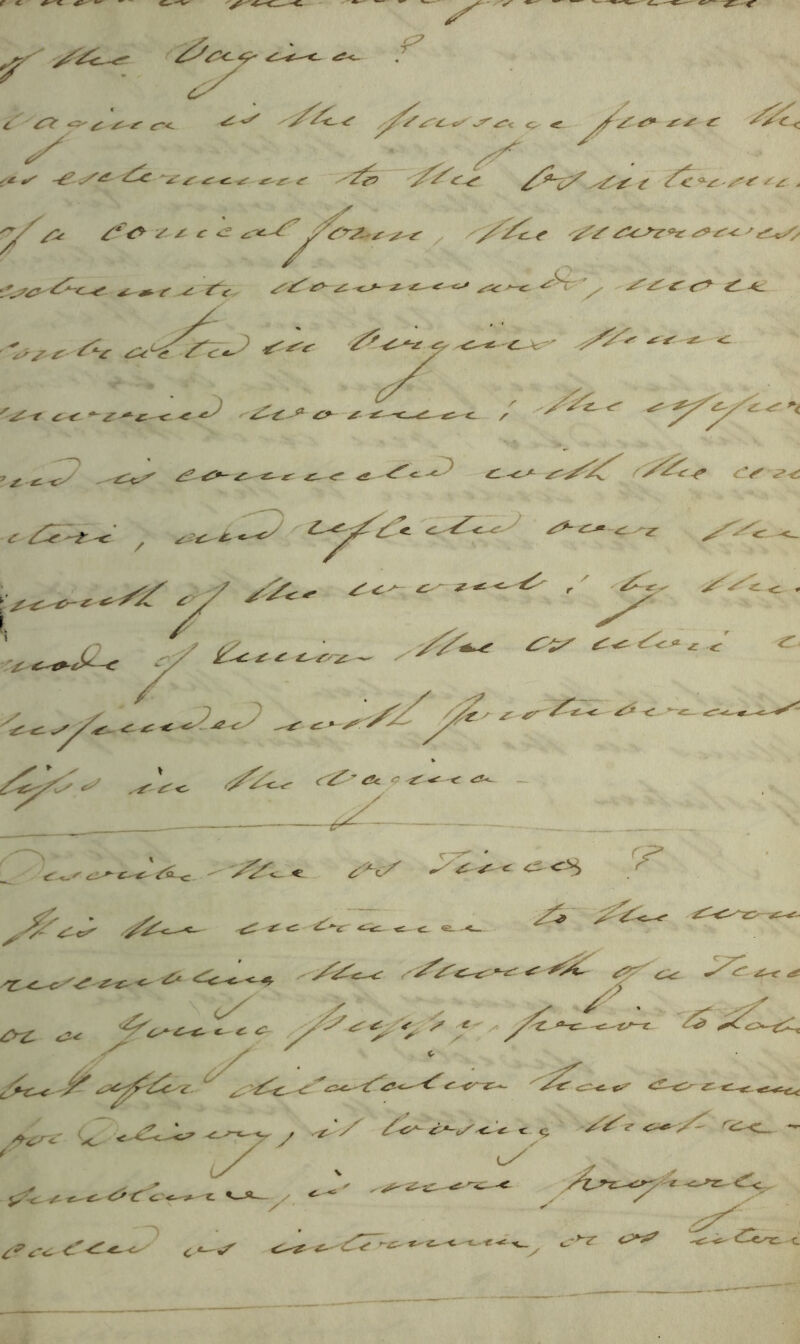 of the Vagina ?
Vagina is the passage from the
os externum to the Os internum
of a conical form, the narrowest
extremity downward, more
contracted in Virgins than
married women; the upper
end is connected with the cer
, and reflected over the
mouth of the womb; by this
mode of Union the os uteri
suspended with protuberant
lips in the Vagina -
Describe the os Tincæ ?
It is the entrance to the wom
resembling the Mouth of a Ten
or a Young puppy, prior to Lab
but after dilatation has commen
for Delivery, it loosing that re-
semblance, is more properly
called os internum, or os uteri